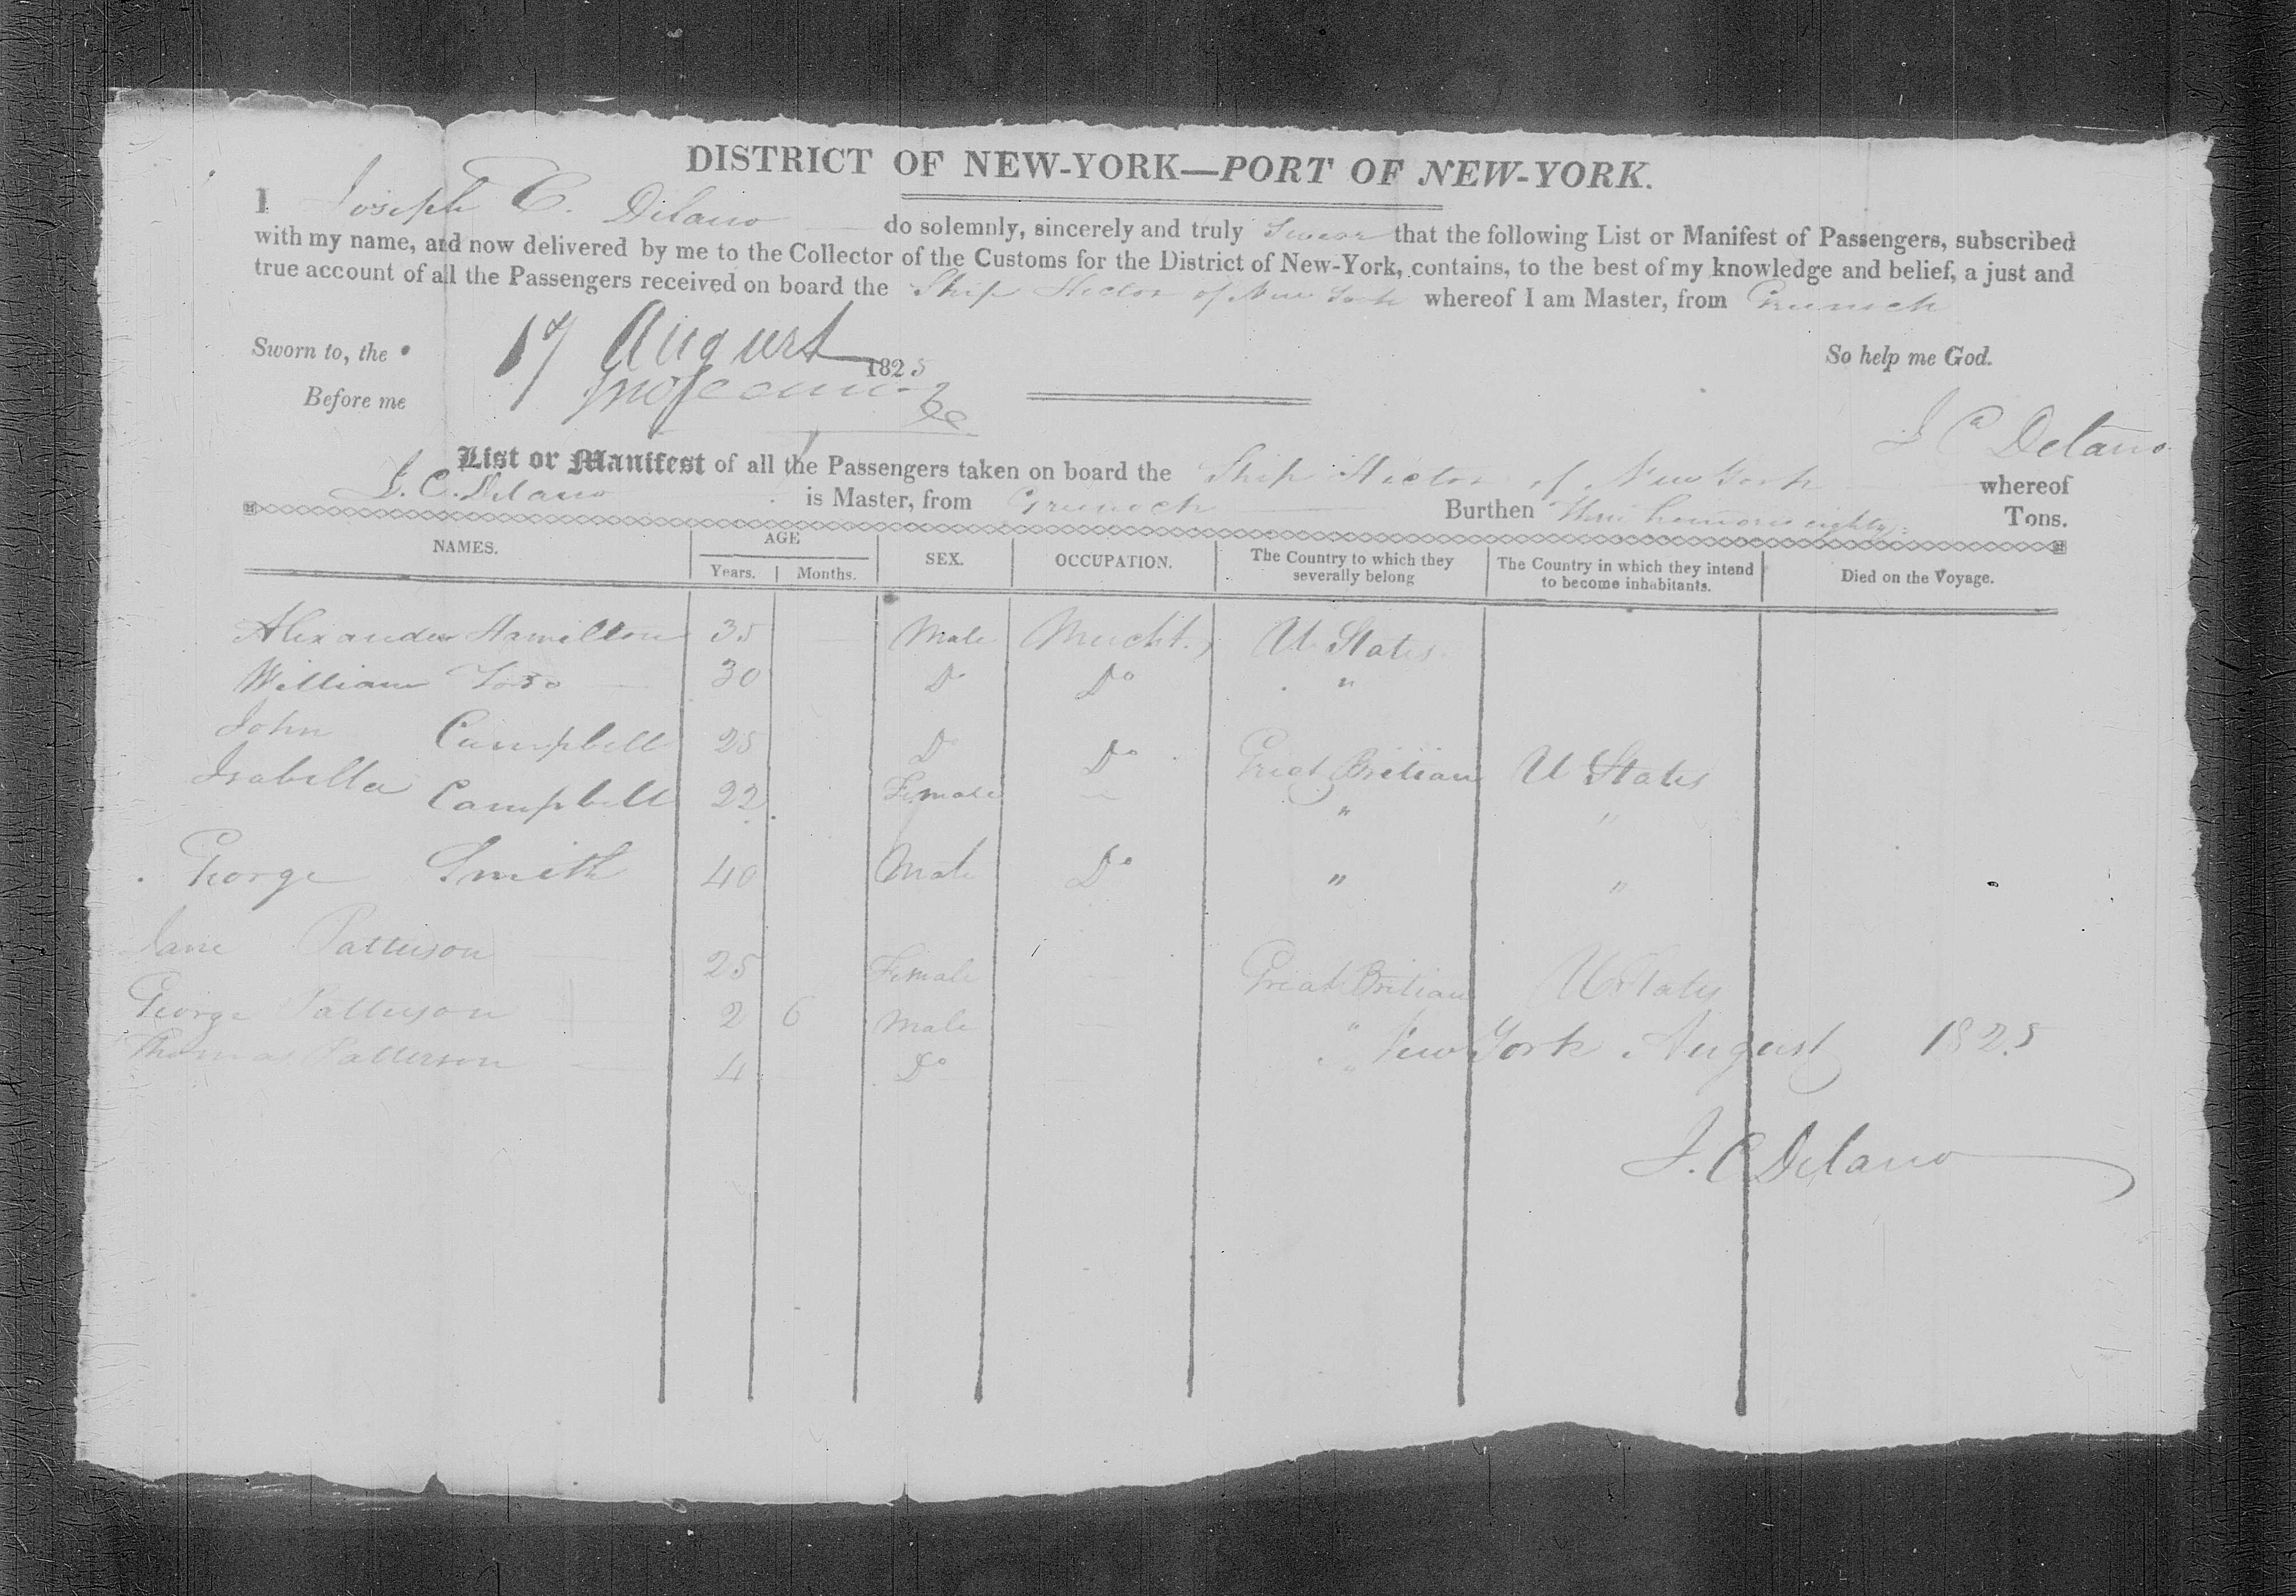 DISTRICT OF NEW-YORK—PORT OF NEW-YORK.
I Joseph C. Delano do solemnly, sincerely and truly Swear that the following List or Manifest of Passengers, subscribed
with my name, and now delivered by me to the Collector of the Customs for the District of New-York, contains, to the best of my knowledge and belief, a just and
true account of all the Passengers received on board the Ship Hector of New York whereof I am Master, from Greenock
Sworn to, the 17 August 1825 So help me God.
Before me
J C Delano
List or Manifest of all the Passengers taken on board the Ship Hector of New York whereof
J. C. Delano is Master, from Greenock Burthen Three hundred eighty Tons.
NAMES. AGE SEX. OCCUPATION. The Country to which they severally belong The Country in which they intend to become inhabitants. Died on the Voyage.
Years. Months.
Alexander Hamilton 35 — Male Mercht. U States
William 30 Do Do "
John Campbell 25 Do Do Great Britian U States
Isabella Campbell 22 Female — " "
George Smith 40 Male Do " "
Jane Patterson — 25 Female — Great Britian U States
George Patterson 2 6 Male — "
Thomas Patterson — 4 — Do — "
New York August 1825
J. C Delano